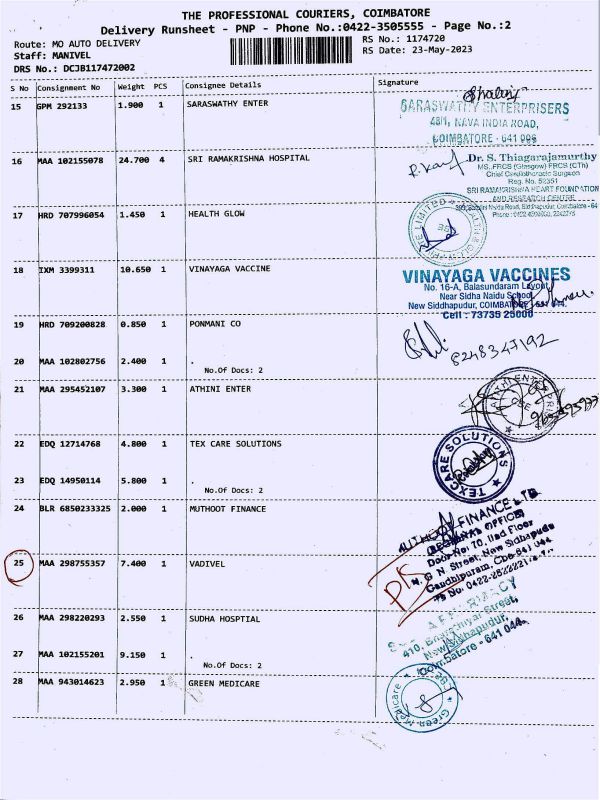 THE PROFESSIONAL COURIERS, COIMBATORE
Delivery Runsheet - PNP - Phone No.:0422-3505555 - Page No.:2
Route: MO AUTO DELIVERY RS No.: 1174720
Staff: MANIVEL RS Date: 23-May-2023
DRS No.: DCJB117472002
S No Consignment No Weight PCS Consignee Details Signature
15 GPM 292133 1.900 1 SARASWATHY ENTER
SARASWATHY ENTERPRISERS
48/1, NAVA INDIA ROAD,
COIMBATORE - 641 006
16 MAA 102155078 24.700 4 SRI RAMAKRISHNA HOSPITAL
Dr. S. Thiagarajamurthy
MS, FRCS (Glasgow) FRCS (CTh)
Chief Cardiothoracic Surgeon
Reg. No. 52351
SRI RAMAKRISHNA HEART FOUNDATION
AND RESEARCH CENTRE
17 HRD 707996054 1.450 1 HEALTH GLOW
18 IXM 3399311 10.650 1 VINAYAGA VACCINE
VINAYAGA VACCINES
No. 16-A, Balasundaram Layout,
Near Sidha Naidu School
New Siddhapudur, COIMBATORE - 641 044.
Cell : 73735 25000
19 HRD 709200828 0.850 1 PONMANI CO
8248347192
20 MAA 102802756 2.400 1 .
No.Of Docs: 2
21 MAA 295452107 3.300 1 ATHINI ENTER
22 EDQ 12714768 4.800 1 TEX CARE SOLUTIONS
TEXCARE SOLUTIONS
23 EDQ 14950114 5.800 1 .
No.Of Docs: 2
24 BLR 6850233325 2.000 1 MUTHOOT FINANCE
MUTHOOT FINANCE LTD
(REGIONAL OFFICE)
Door No: 70, IInd Floor
N. G N Street, New Sidhapudur
Gandhipuram, Cbe-641 044
25 MAA 298755357 7.400 1 VADIVEL
26 MAA 298220293 2.550 1 SUDHA HOSPTIAL
PHARMACY
410, Bharathiyar Street,
New Siddhapudur,
Coimbatore - 641 044.
27 MAA 102155201 9.150 1 .
No.Of Docs: 2
28 MAA 943014623 2.950 1 GREEN MEDICARE
Green Medicare